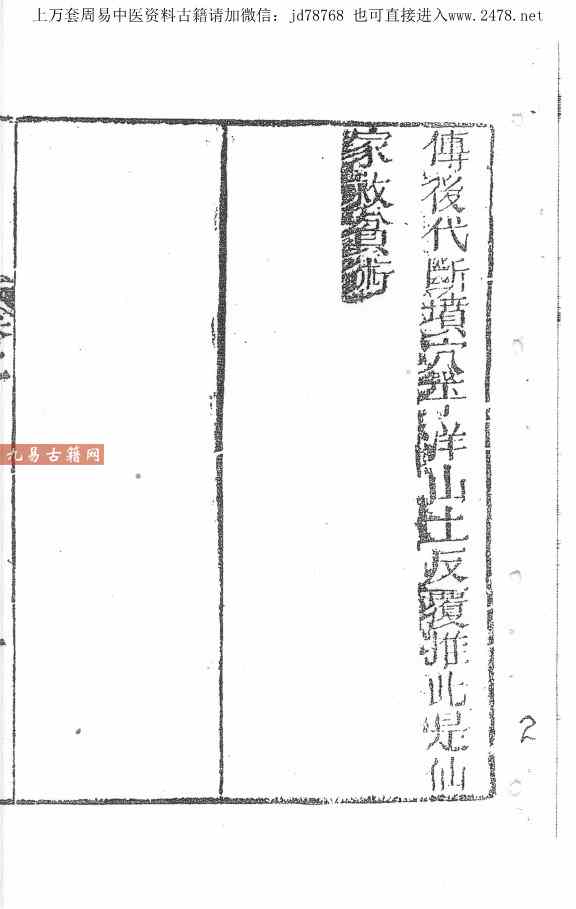 上万套周易中医资料古籍请加微信：jd78768 也可直接进入www.2478.net
傳後代斷墳穴
洋山土反覆推此是仙
家救貧術
九易古籍网
2